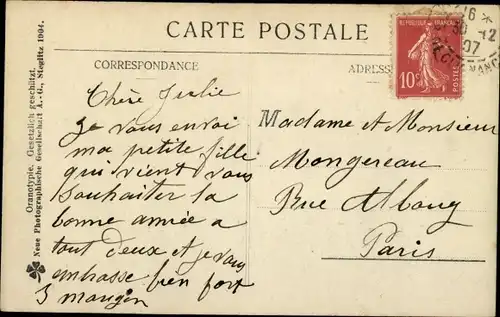 CARTE POSTALE
CORRESPONDANCE
ADRESS
REPUBLIQUE FRANÇAISE
10c
POSTES
30 -12
07
Chère Jeslie
je vous envoi
ma petite fille
qui vient vous
souhaiter la
bonne année a
tout deux et je vous
embrasse bien fort
J mangin
Madame et Monsieur
Mongereau
Rue Albouy
Paris
Oranotypie. Gesetzlich geschützt.
Neue Photographische Gesellschaft A.-G., Steglitz 1904.